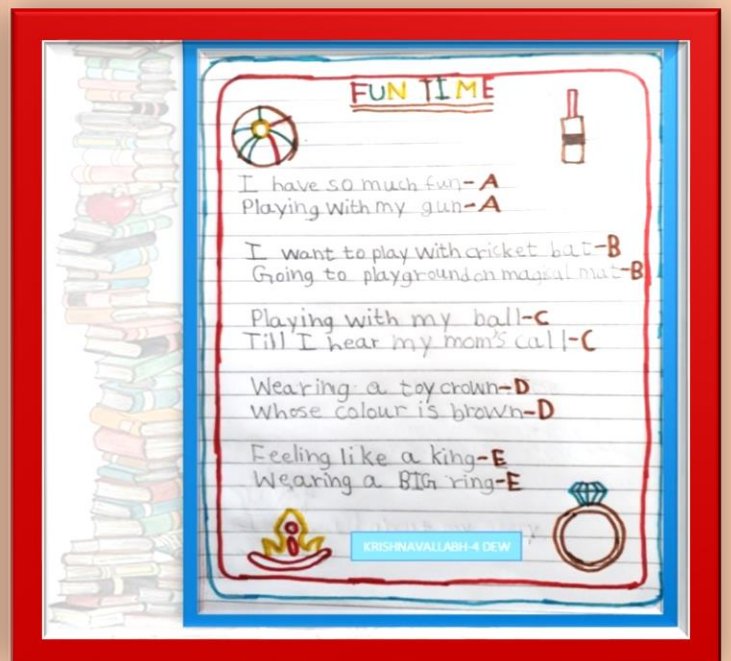 FUN TIME
I have so much fun-A
Playing with my gun-A
I want to play with cricket bat-B
Going to playground on magical mat-B
Playing with my ball-C
Till I hear my mom's call-C
Wearing a toy crown-D
Whose colour is brown-D
Feeling like a king-E
Wearing a BIG ring-E
KRISHNAVALLABH-4 DEW